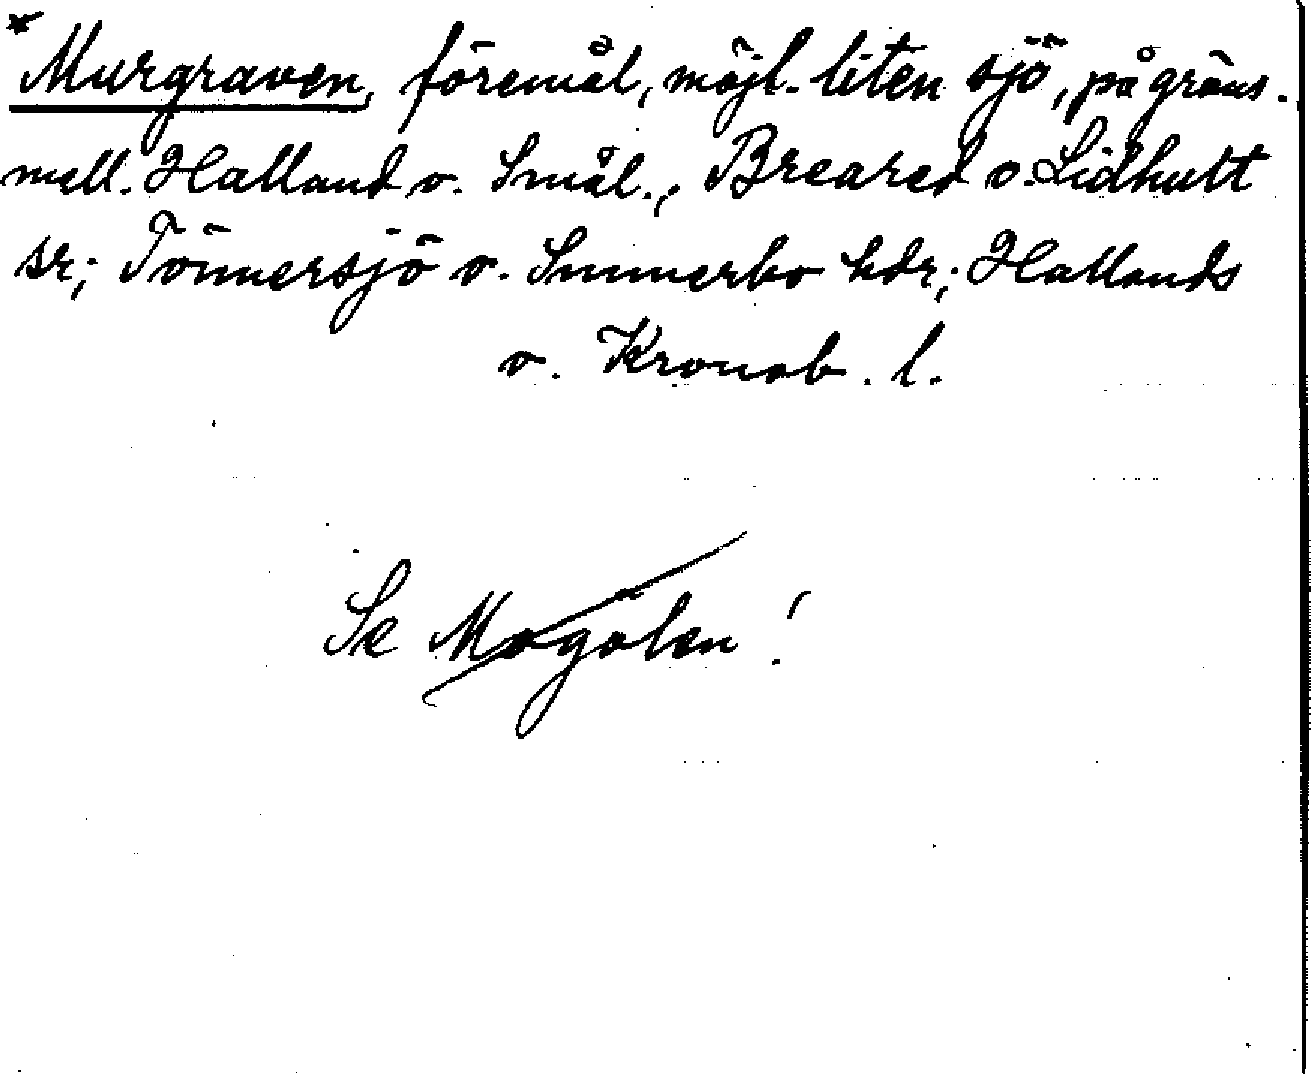 * Murgraven, föremål, möjl. liten sjö, på gräns.
mell. Halland o. Smål., Breared o. Lidhult
sr; Tönnersjö o. Sunnerbo hdr; Hallands
o. Kronob. l.
Se Mogölen!